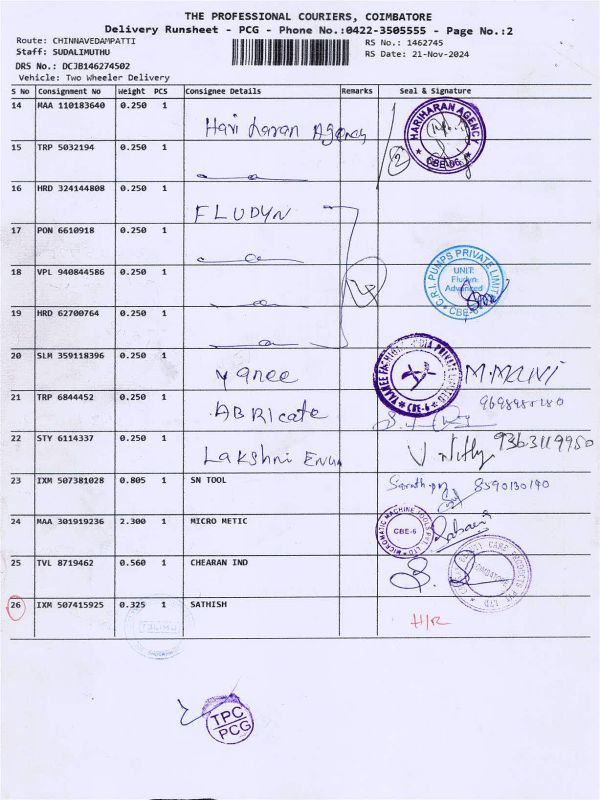 THE PROFESSIONAL COURIERS, COIMBATORE
Delivery Runsheet - PCG - Phone No.:0422-3505555 - Page No.:2
Route: CHINNAVEDAMPATTI
RS No.: 1462745
Staff: SUDALIMUTHU
RS Date: 21-Nov-2024
DRS No.: DCJB146274502
Vehicle: Two Wheeler Delivery
S No Consignment No Weight PCS Consignee Details Remarks Seal & Signature
14 MAA 110183640 0.250 1 Hari haran Agency
HARIHARAN AGENCY
CBE-06
2
15 TRP 5032194 0.250 1
16 HRD 324144808 0.250 1 FLUDYN
17 PON 6610918 0.250 1
C.R.I. PUMPS PRIVATE LIMITED
UNIT:
Fludyn
Advanced
CBE-6
4
18 VPL 940844586 0.250 1
19 HRD 62700764 0.250 1
20 SLM 359118396 0.250 1 yanee
CBE-6
M.MANI
21 TRP 6844452 0.250 1 ABRicate
22 STY 6114337 0.250 1 Lakshmi Eng 9363119950
23 IXM 507381028 0.805 1 SN TOOL 8590130140
24 MAA 301919236 2.300 1 MICRO METIC
MICROMATIC MACHINE TOOLS PVT. LTD
CBE-6
25 TVL 8719462 0.560 1 CHEARAN IND
26 IXM 507415925 0.325 1 SATHISH H/R
TPC
PCG